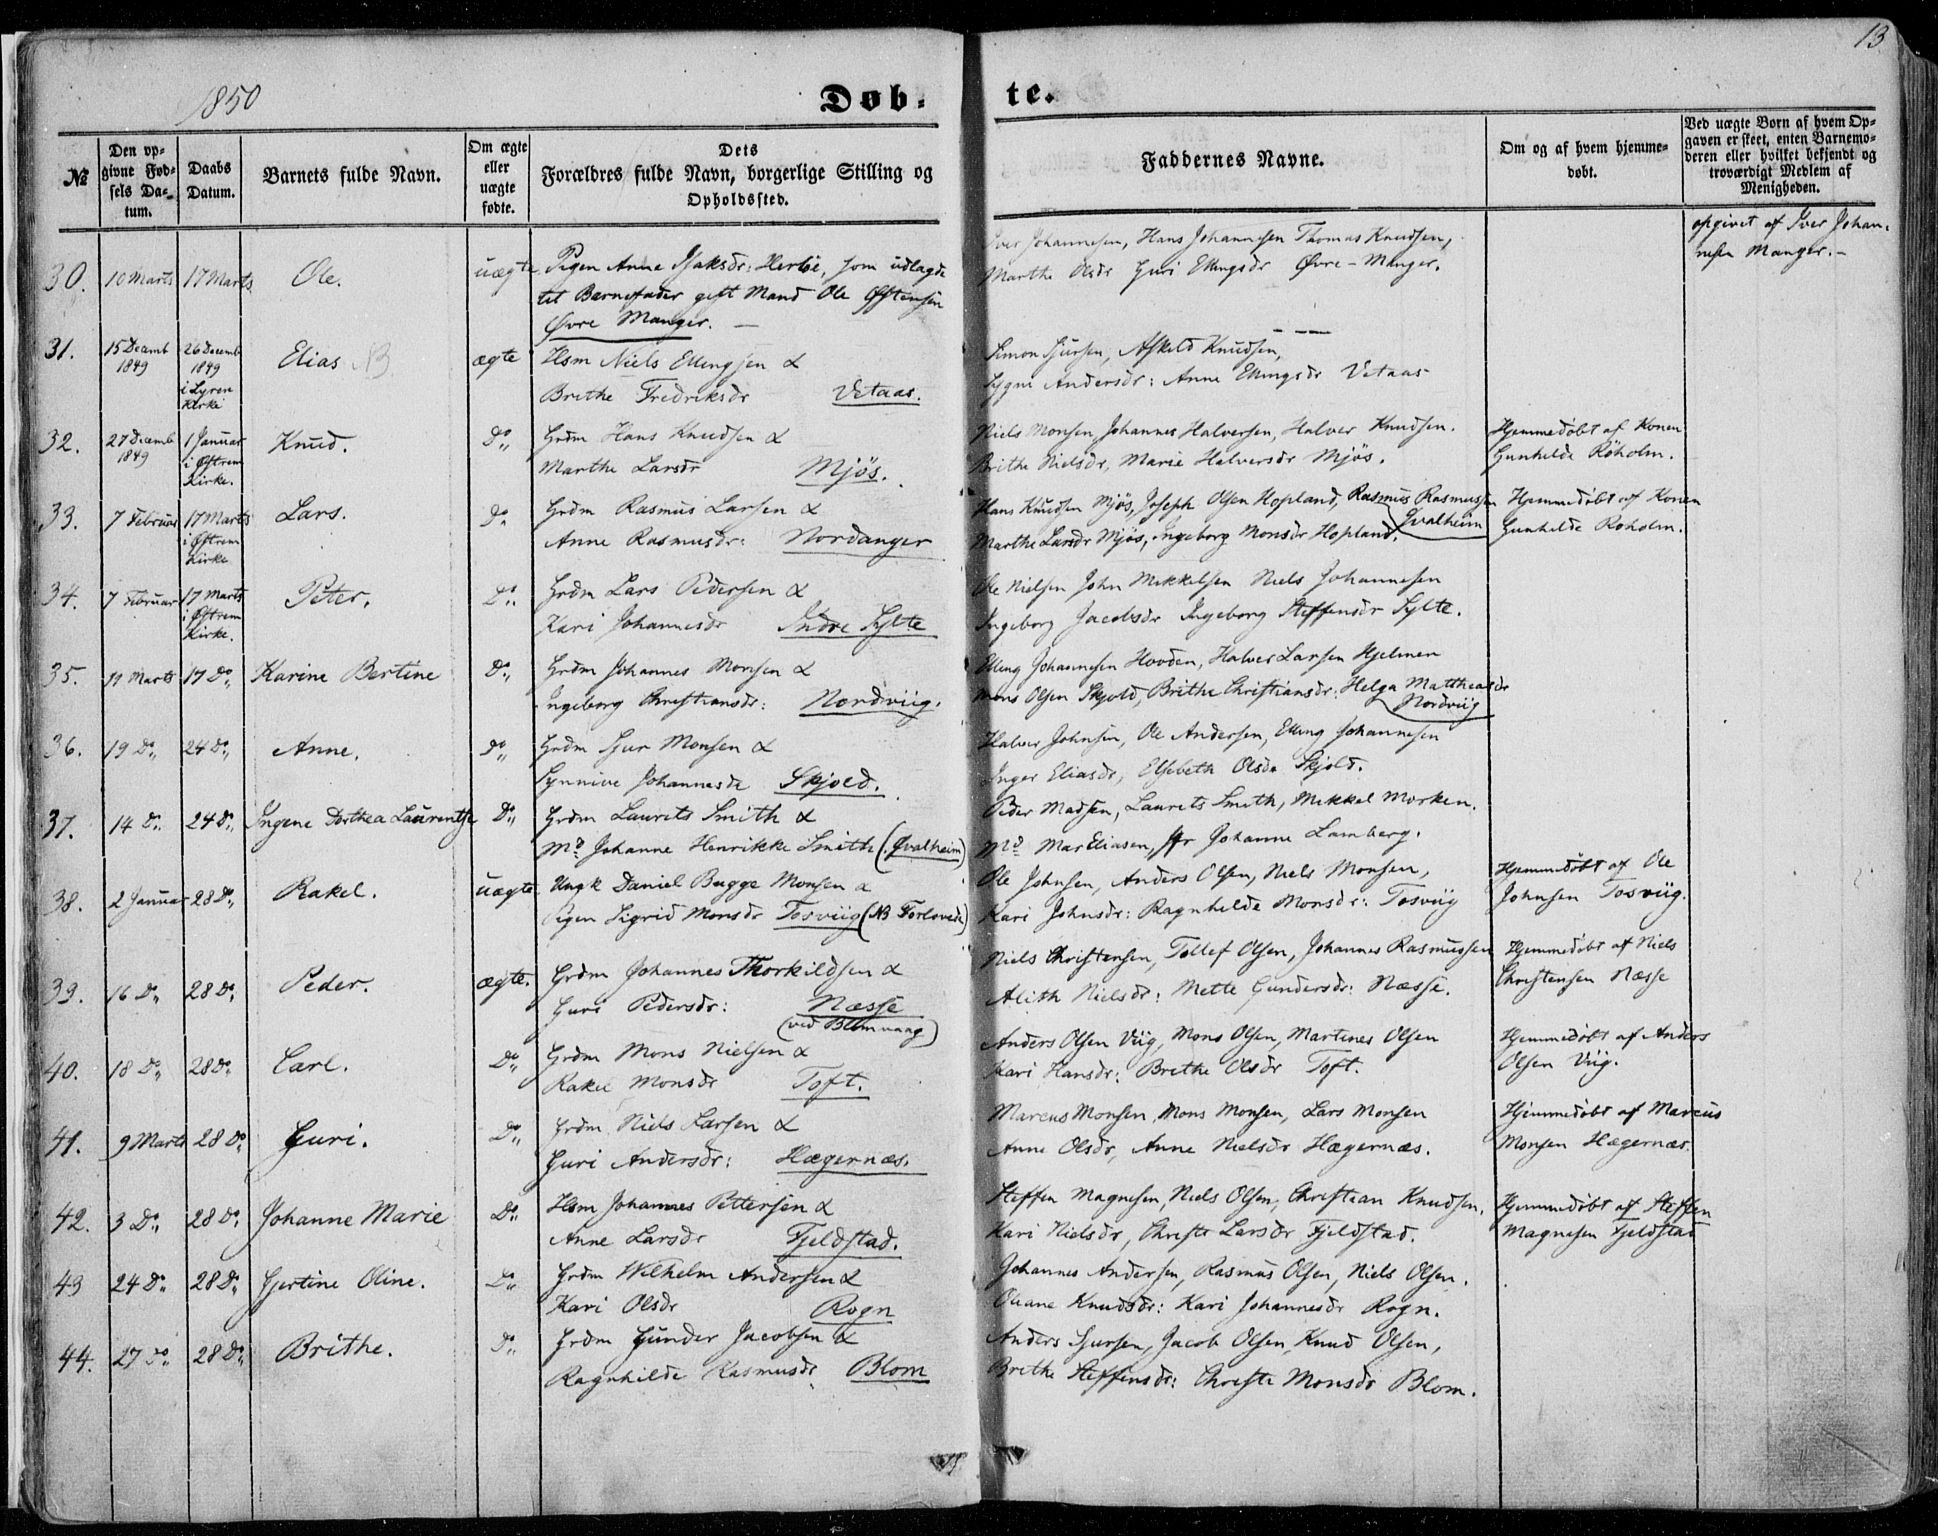 13
1850
Døb-
te.
№
Den op-
givne Fød-
sels Da-
tum.
Daabs
Datum.
Barnets fulde Navn.
Om ægte
eller
uægte
fødte.
Dets
Forældres fulde Navn, borgerlige Stilling og
Opholdssted.
Faddernes Navne.
Om og af hvem hjemme-
døbt.
Ved uægte Børn af hvem Op-
gaven er skeet, enten Barnemo-
deren eller hvilket bekjendt og
troværdigt Medlem af
Menigheden.
30. 10 Marts 17 Marts Ole. uægte Pigen Anne Isaksdr: Herløe, som udlagde
til Barnefader gift Mand Ole Østensen
Øvre Manger. —
Iver Johannesen, Hans Johannesen Thomas Knudsen,
Marthe Olsdr Guri Ellingsdr Øvre-Manger.
opgivet af Iver Johan-
nesen Manger. —
31. 15 Decemb 1849
26 Decemb 1849
i Lyren
Kirke
Elias NB ægte Hsm Niels Ellingsen &
Brithe Fredriksdr Vetaas.
Simon Sjursen, Askild Knudsen,
Sygni Andersdr: Anne Ellingsdr Vetaas
32. 27 Decemb 1849
1 Januar
i Østrem
Kirke.
Knud. Do Grdm Hans Knudsen &
Marthe Larsdr Mjøs.
Niels Monsen, Johannes Halversen, Halver Knudsen.
Brithe Nielsdr, Marie Halversdr Mjøs.
Hjemmedøbt af Konen
Gunhilde Røholm.
33. 7 Februar 17 Marts
i Østrem
Kirke
Lars. Do Grdm Rasmus Larsen &
Anne Rasmusdr: Nordanger
Hans Knudsen Mjøs, Joseph Olsen Hopland, Rasmus Rasmussen
Qvalheim
Marthe Larsdr Mjøs, Ingeborg Monsdr Hopland.
Hjemmedøbt af Konen
Gunhilde Røholm.
34. 7 Februar 17 Marts
i Østrem
Kirke.
Peter. Do Grdm Lars Pedersen &
Kari Johannesdr Indre Sylte
Ole Nielsen John Mikkelsen Niels Johannesen
Ingeborg Jacobsdr Ingeborg Steffensdr Sylte.
35. 11 Marts 17 Do Karine Bertine Do Grdm Johannes Monsen &
Ingeborg Christiansdr: Nordviig.
Elling Johannesen Hovden, Halver Larsen Hjelmen
Mons Olsen Skjold, Brithe Christiansdr: Helga Matthiasdr
Nordviig
36. 19 Do 24 Do Anne. Do Grdm Sjur Monsen &
Synnive Johannesdr Skjold.
Halver Johnsen, Ole Andersen, Elling Johannesen
Inger Eliasdr, Elsebeth Olsdr Skjold.
37. 14 Do 24 Do Ingene Dorthea Laurentse Do Grdm Laurits Smith &
Md Johanne Henrikke Smith (Qvalheim)
Peder Madsen, Laurits Smith, Mikkel Morken.
Md Mar Eliasen, Jfr Johanne Lamberg.
38. 2 Januar 28 Do Rakel. uægte Ungk Daniel Bugge Monsen &
Pigen Sigrid Monsdr Tosviig (NB Forlovede)
Ole Johnsen, Anders Olsen, Niels Monsen,
Kari Johnsdr: Ragnhilde Monsdr: Tosviig
Hjemmedøbt af Ole
Johnsen Tosviig.
39. 16 Do 28 Do Peder. ægte. Grdm Johannes Thorkildsen &
Guri Pedersdr: Næsse
(ved Blomvaag)
Niels Christensen, Tollef Olsen, Johannes Rasmussen
Alith Nielsdr: Mette Gundersdr: Næsse.
Hjemmedøbt af Niels
Christensen Næsse
40. 18 Do 28 Do Carl. Do Grdm Mons Nielsen &
Rakel Monsdr Toft.
Anders Olsen Viig, Mons Olsen, Martines Olsen
Kari Hansdr: Brithe Olsdr Toft.
Hjemmedøbt af Anders
Olsen Viig.
41. 9 Marts 28 Do Guri. Do Grdm Niels Larsen &
Guri Andersdr: Hægernæs.
Marcus Monsen, Mons Monsen, Lars Monsen
Anne Olsdr, Anne Nielsdr Hægernæs.
Hjemmedøbt af Marcus
Monsen Hægernæs
42. 3 Do 28 Do Johanne Marie Do Hsm Johannes Pettersen &
Anne Larsdr Fjeldstad.
Steffen Magnesen, Niels Olsen, Christian Knudsen,
Kari Nielsdr, Christi Larsdr Fjeldstad.
Hjemmedøbt af Steffen
Magnesen Fjeldstad
43 24 Do 28 Do Gjertine Oline. Do Grdm Wilhelm Andersen &
Kari Olsdr Rogn
Johannes Andersen, Rasmus Olsen, Niels Olsen.
Oliane Knudsdr: Kari Johannesdr Rogn.
44. 27 Do 28 Do Brithe. Do Grdm Gunder Jacobsen &
Ragnhilde Rasmusdr Blom
Anders Sjursen, Jacob Olsen, Knud Olsen,
Brithe Steffensdr: Christi Monsdr Blom.